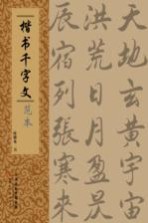 楷书千字文
范本
天地玄黄宇宙
洪荒日月盈昃
辰宿列张寒来